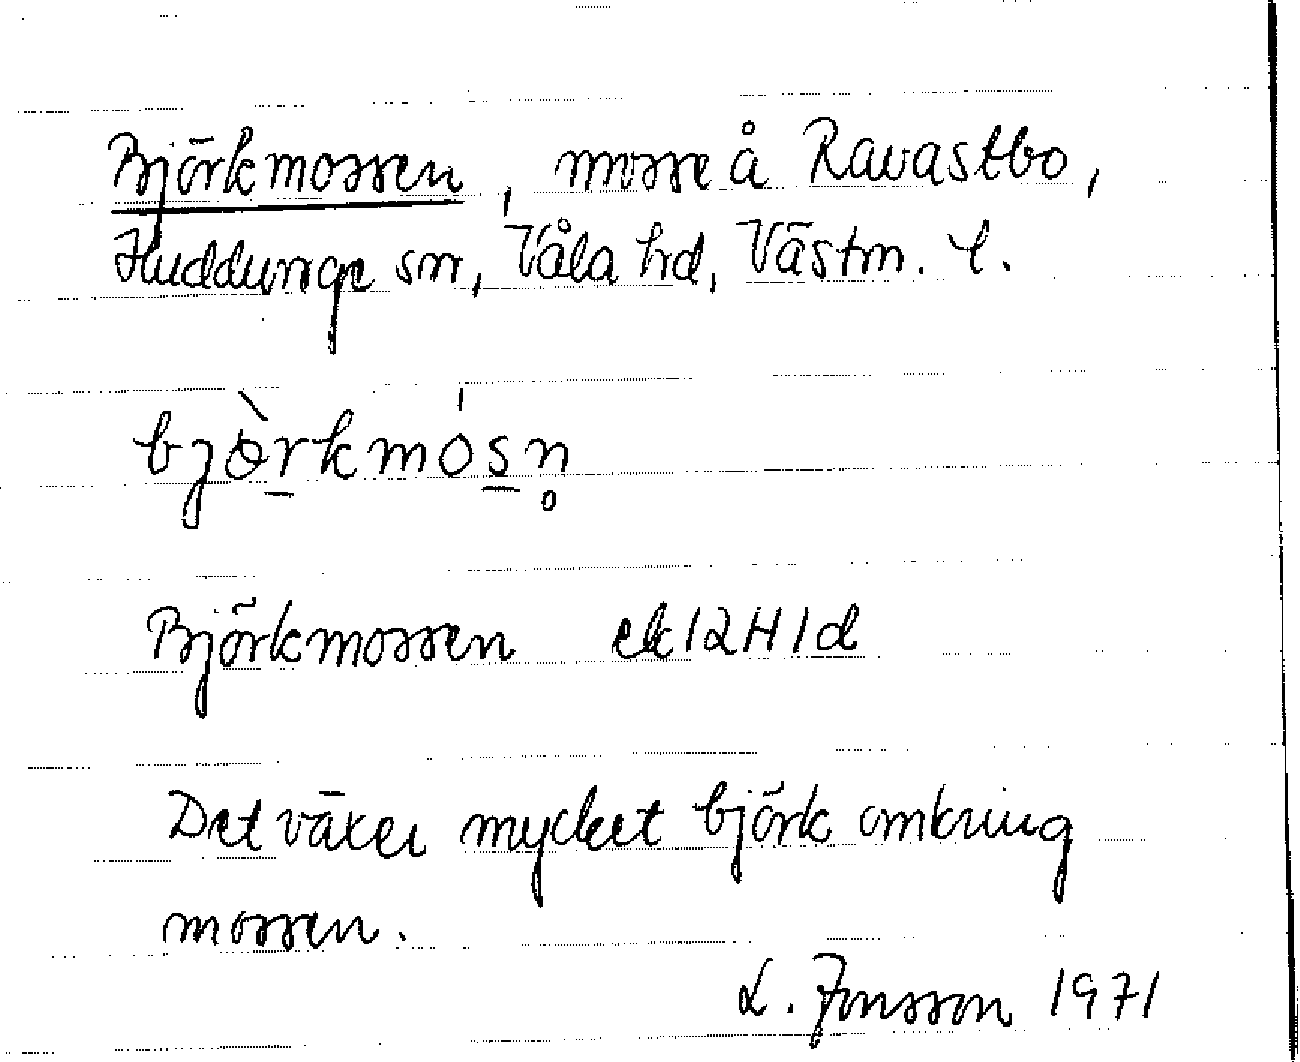 Björkmossen, mosse å Ravastbo,
Huddunge sn, Våla hd, Västm. l.
bjòrkmósn̥
Björkmossen ek 12H1d
Det växer mycket björk omkring
mossen.
L. Jonsson 1971